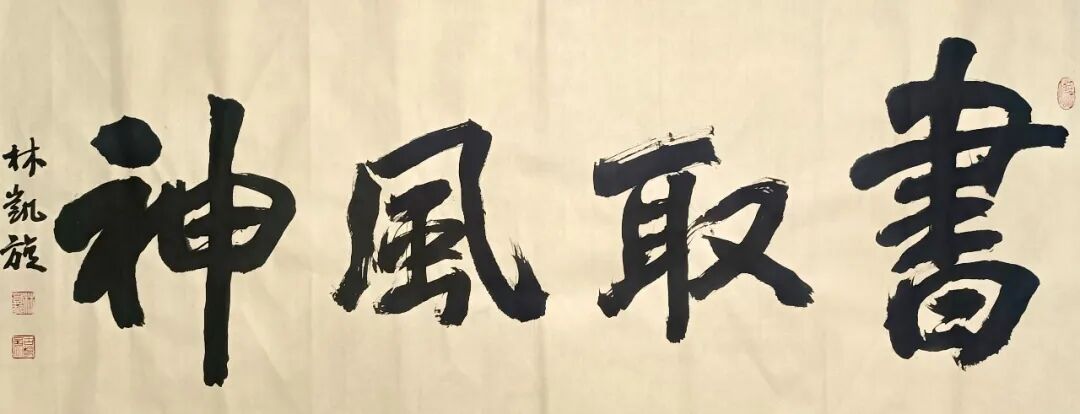 書取風神
林凱旋